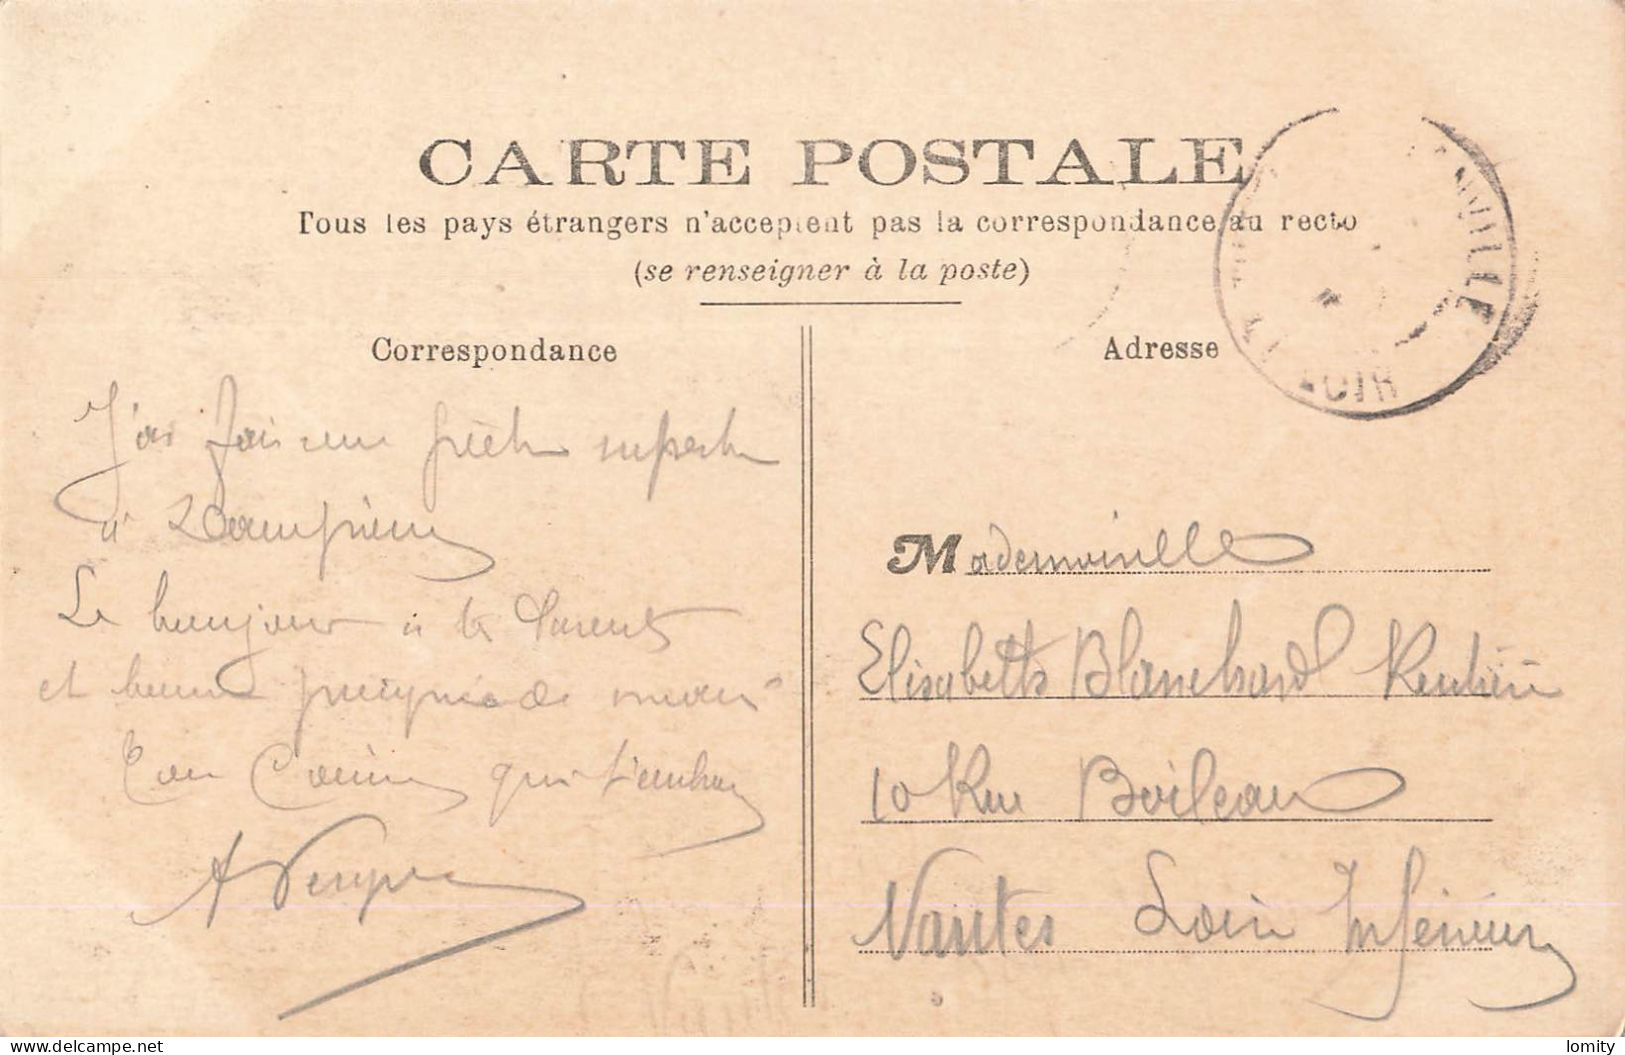 CARTE POSTALE
Tous les pays étrangers n'acceptent pas la correspondance au recto
(se renseigner à la poste)
Correspondance
Adresse
J'ai fais une superbe
à Dampierre
Le bonjour à tes Parents
et bonne poignée de main
Ton Cousin qui t'embrasse
A
Mademoiselle
Elisabeth Blanchard Rentière
10 Rue Boileau
Nantes Loire Inférieure
delcampe.net
lomity